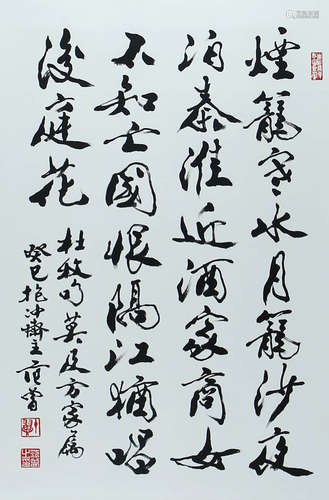 煙籠寒水月籠沙夜
泊秦淮近酒家商女
不知亡國恨隔江猶唱
後庭花
杜牧句莫及方家屬
癸巳抱沖齋主范曾